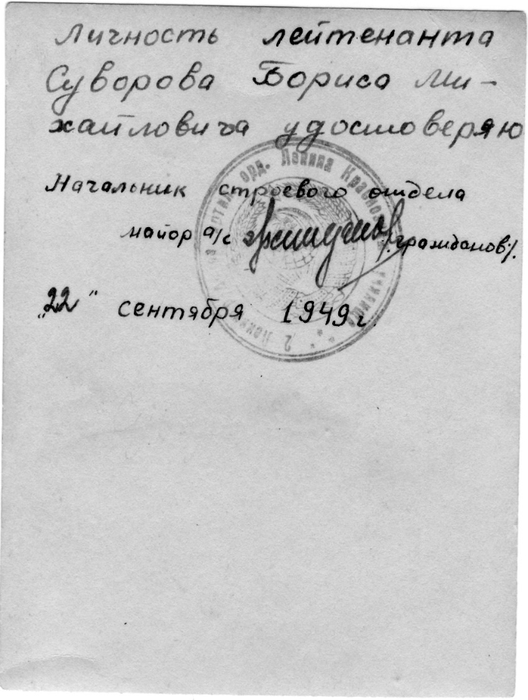 Личность лейтенанта
Суворова Бориса Ми-
хайловича удостоверяю
Начальник строевого отдела
майор а/с
/Гражданов/.
"22" сентября 1949 г.
орд. Ленина Красно
2